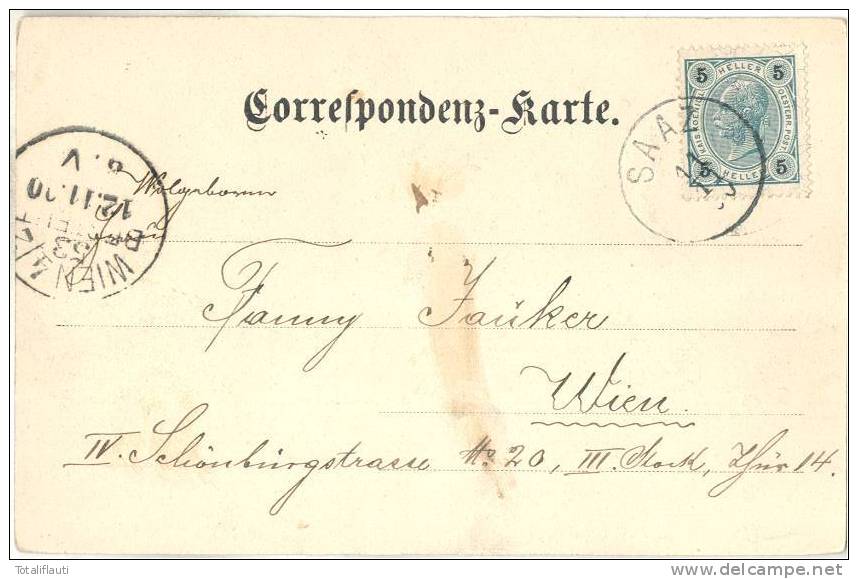 Correspondenz-Karte.
5 HELLER 5
KAIS. KOENIGL.
OESTERR. POST.
5 HELLER 5
SAAZ
11
WIEN 4/1
53
12.11.00
8.V
BESTELLT
Wolgeboren
Frau
Fanny Jauker
Wien.
IV. Schönburgstrasse No. 20, III. Stock, Thür 14.
Totaliflauti
www.delcampe.net